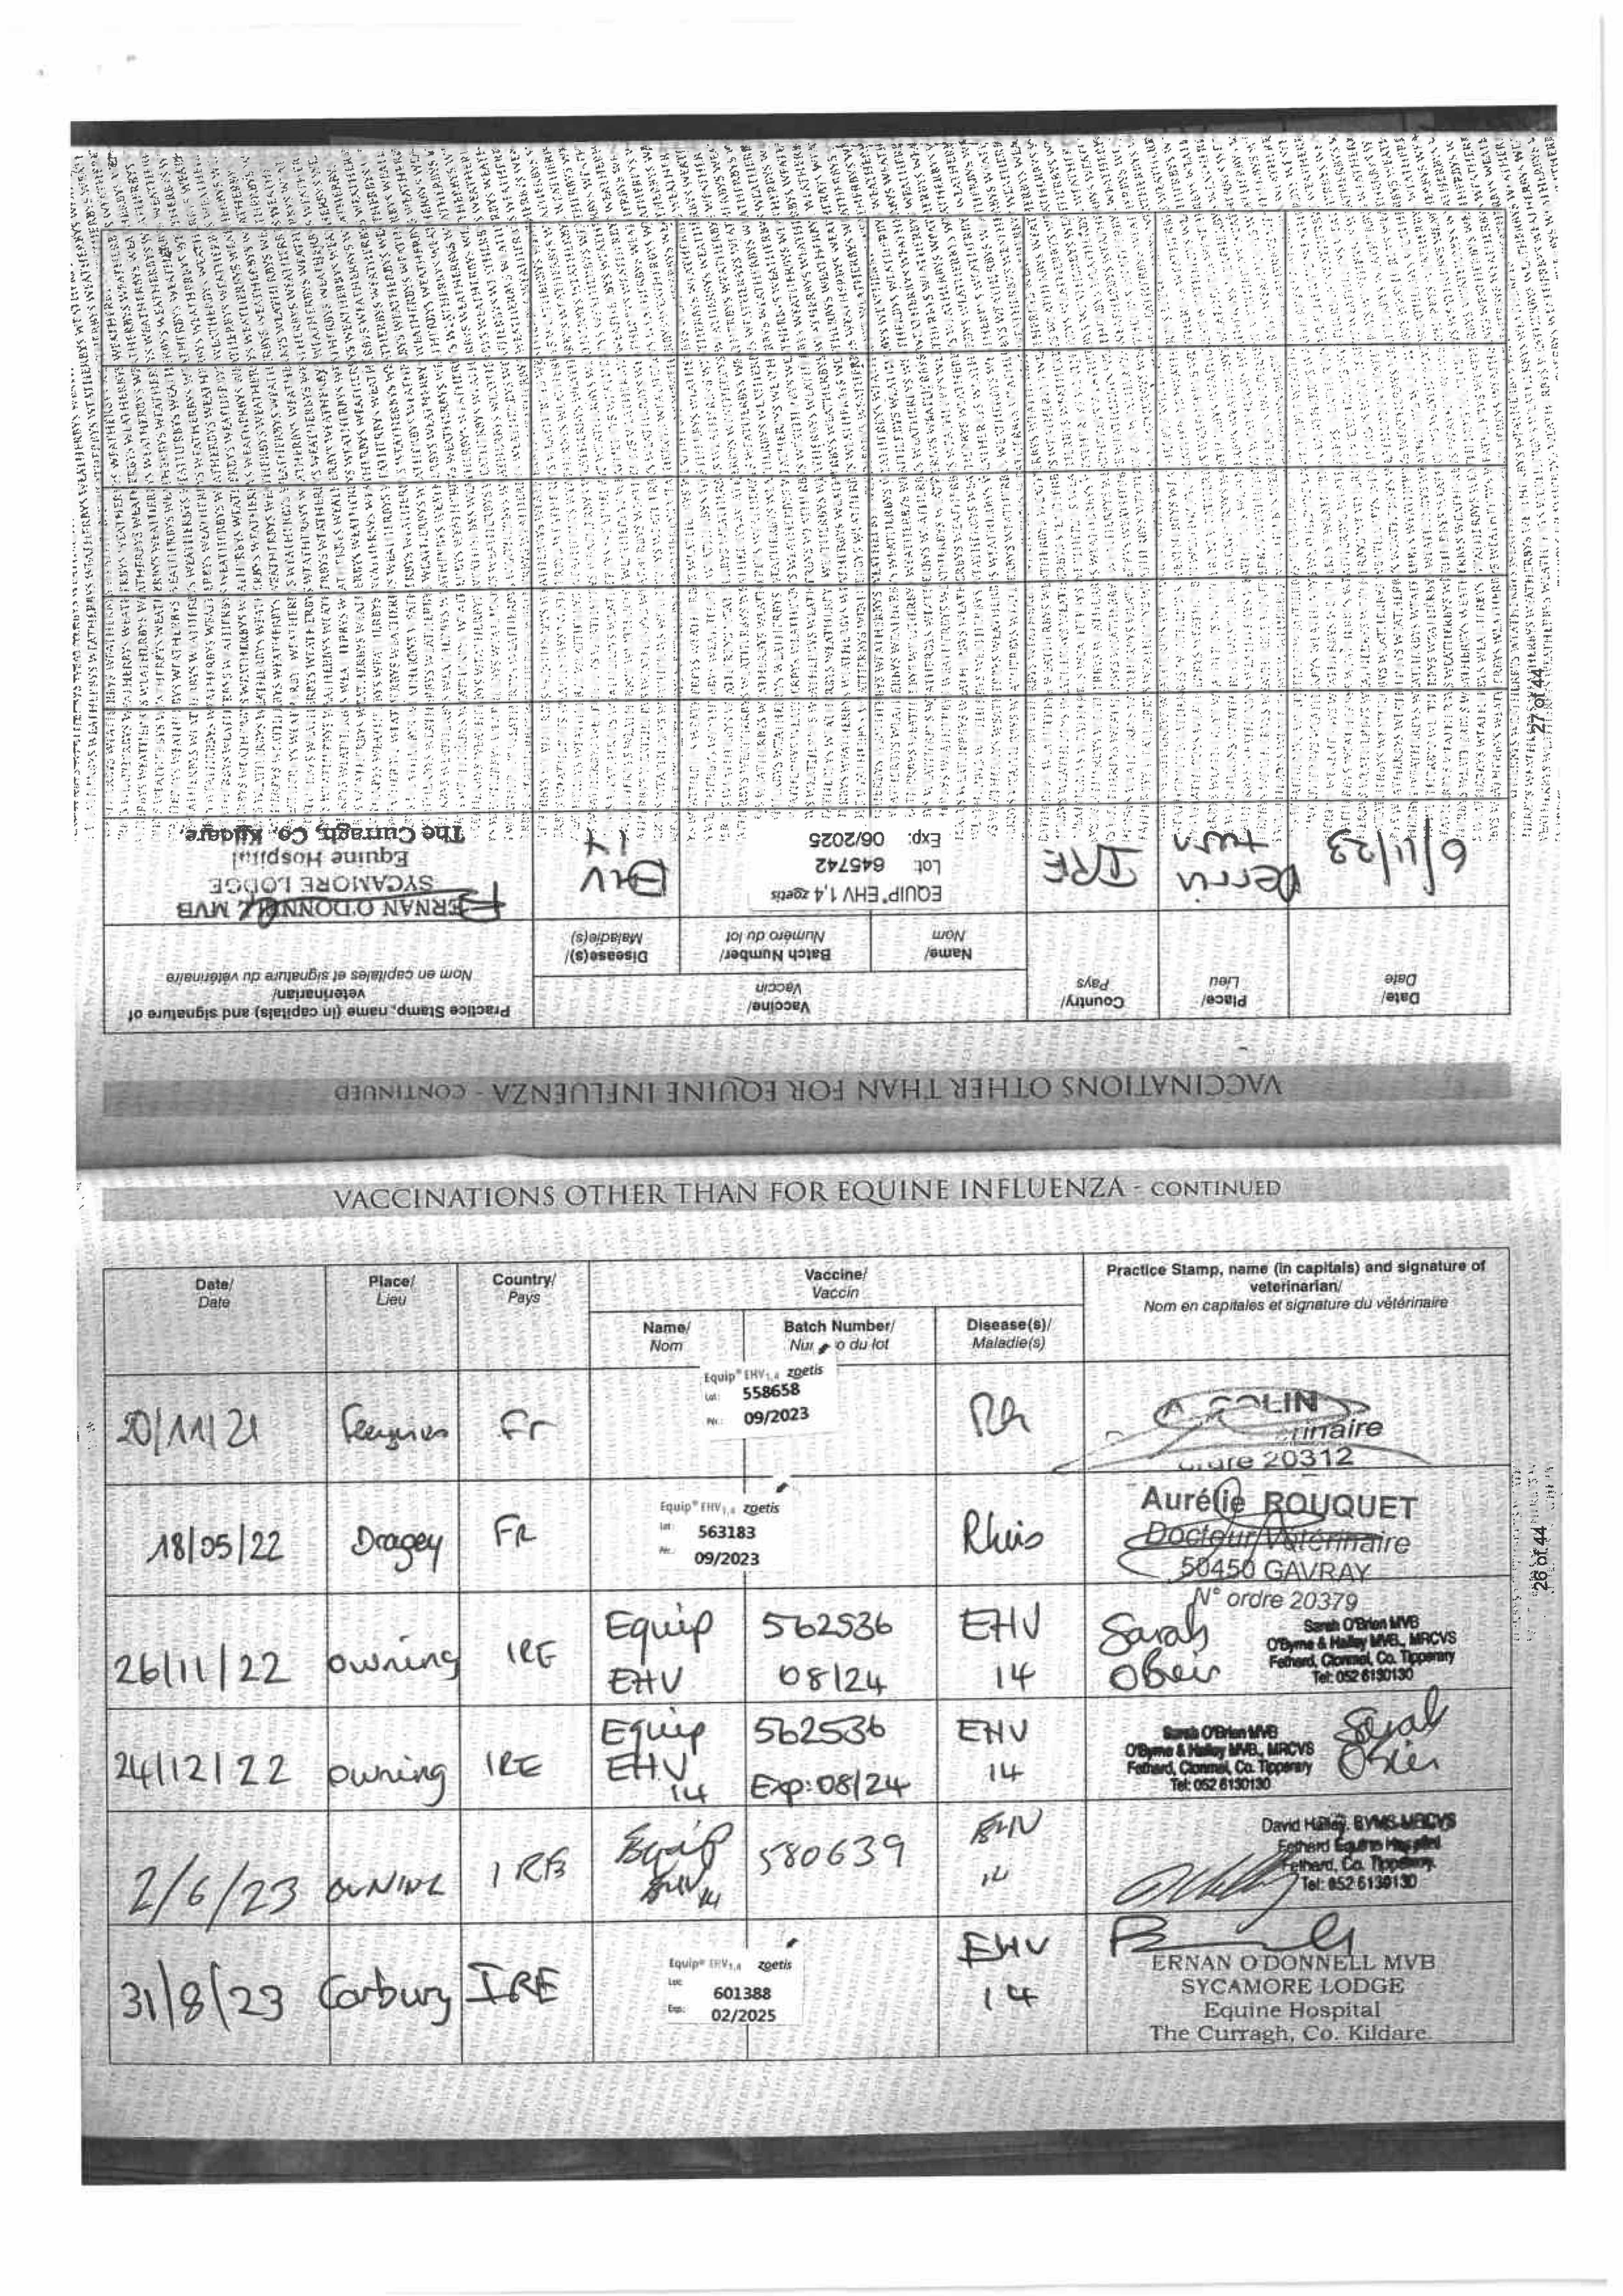 VACCINATIONS OTHER THAN FOR EQUINE INFLUENZA - CONTINUED
Date/
Date
Place/
Lieu
Country/
Pays
Vaccine/
Vaccin
Name/
Nom
Batch Number/
Numéro du lot
Disease(s)/
Maladie(s)
Practice Stamp, name (in capitals) and signature of
veterinarian/
Nom en capitales et signature du vétérinaire
6/11/23
Derrin
turn
IRE
EQUIP® EHV 1,4 zoetis
Lot: 645742
Exp: 06/2025
EHV
14
ERNAN O'DONNELL MVB
SYCAMORE LODGE
Equine Hospital
The Curragh, Co. Kildare.
27 of 44
VACCINATIONS OTHER THAN FOR EQUINE INFLUENZA - CONTINUED
Date/
Date
Place/
Lieu
Country/
Pays
Vaccine/
Vaccin
Name/
Nom
Batch Number/
Nu o du lot
Disease(s)/
Maladie(s)
Practice Stamp, name (in capitals) and signature of
veterinarian/
Nom en capitales et signature du vétérinaire
20/11/21
Fr
Equip® EHV1,4 zoetis
Lot: 558658
09/2023
Rh
A COLIN
rinaire
20312
18/05/22
Dragey
FR
Equip® EHV1,4 zoetis
Lot: 563183
09/2023
Rhis
Aurélie ROUQUET
Docteur Vétérinaire
50450 GAVRAY
N° ordre 20379
26/11/22
owning
IRE
Equip
EHV
562536
08/24
EHV
14
Sarah
OBrien
Sarah O'Brien MVB
O'Byrne & Halley MVB., MRCVS
Fethard, Clonmel, Co. Tipperary
Tel: 052 6130130
24/12/22
owning
IRE
Equip
EHV
14
562536
Exp: 08/24
EHV
14
Sarah O'Brien MVB
O'Byrne & Halley MVB., MRCVS
Fethard, Clonmel, Co. Tipperary
Tel: 052 6130130
Sarah
OBrien
2/6/23
OWNING
IRE
Equip
EHV
14
580639
EHV
14
David Halley, BVMS MRCVS
Fethard Equine Hospital
Fethard, Co. Tipperary.
Tel: 052 6130130
31/8/23
Carbury
IRE
Equip® EHV1,4 zoetis
Lot: 601388
Exp: 02/2025
EHV
14
ERNAN O'DONNELL MVB
SYCAMORE LODGE
Equine Hospital
The Curragh, Co. Kildare.
26 of 44